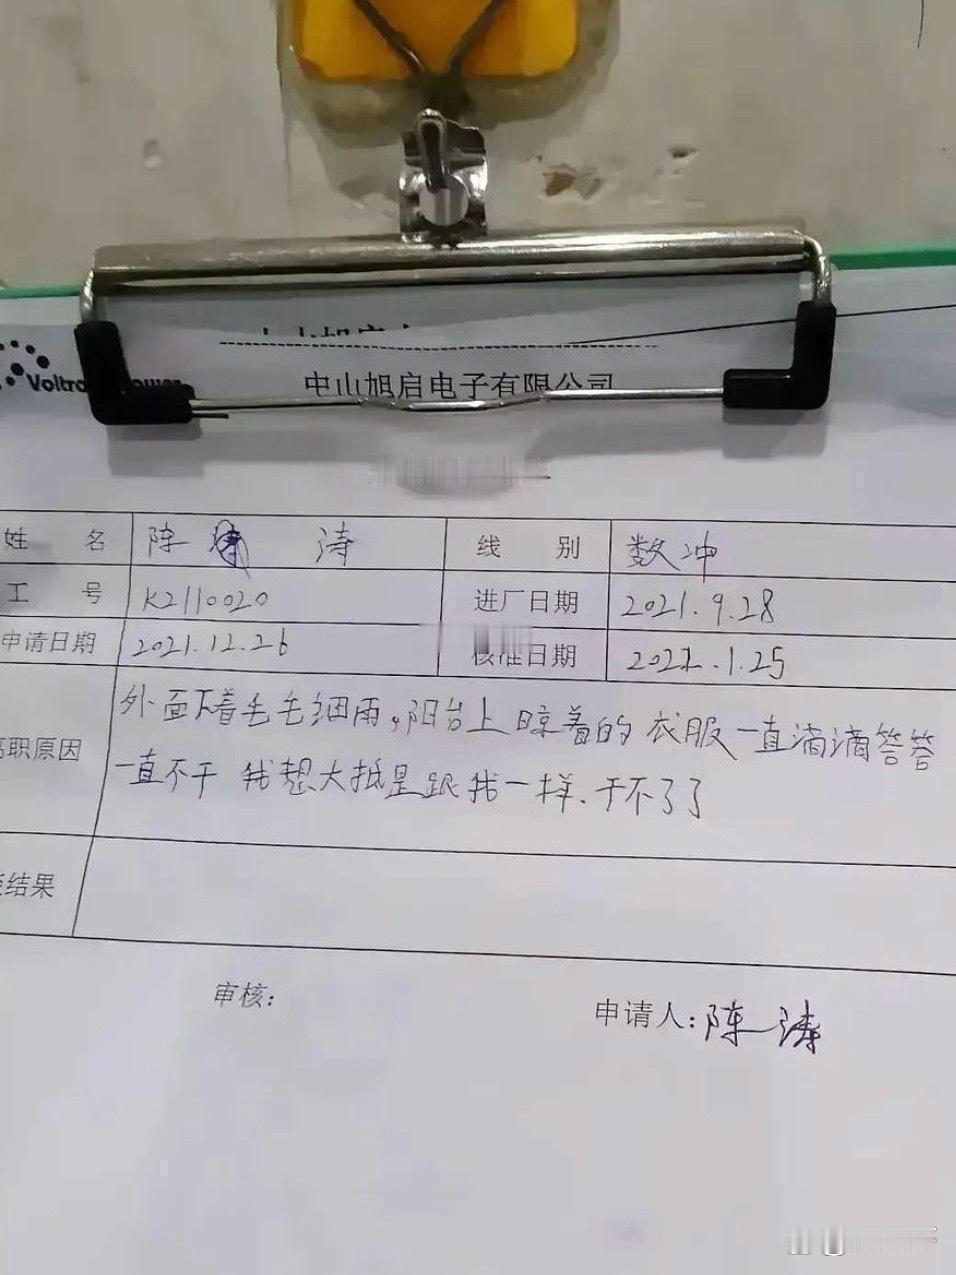 中山旭启电子有限公司
姓 名 陈 涛 线 别 数冲
工 号 K2110020 进厂日期 2021.9.28
申请日期 2021.12.26 核准日期 2022.1.25
外面下着毛毛细雨,阳台上晾着的衣服一直滴滴答答
职原因
一直不干 我想大抵是跟我一样、干不了了
结果
审核:
申请人:陈涛